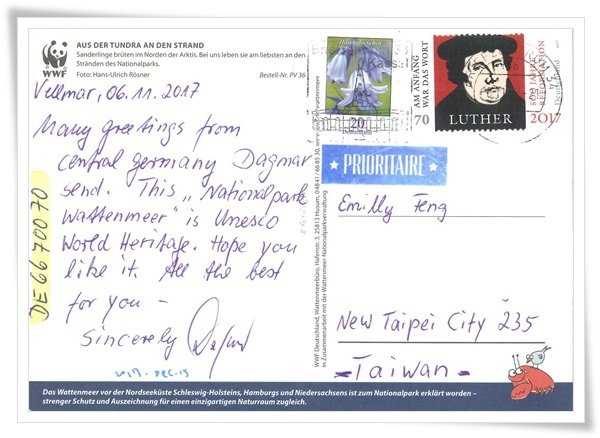 WWF
AUS DER TUNDRA AN DEN STRAND
Sanderlinge brüten im Norden der Arktis. Bei uns leben sie am liebsten an den
Stränden des Nationalparks.
Foto: Hans-Ulrich Rösner
Bestell-Nr. PV 36
Vellmar, 06.11.2017
Many greetings from
central germany Dagmar
send. This „Nationalpark
Wattenmeer" is Unesco
World Heritage. Hope you
like it. All the best
for you –
Sincerely
DE 6670070
2017. DEC. 15
WWF Deutschland, Wattenmeerbüro, Hafenstr. 3, 25813 Husum, 04841/66 85 30, www.wwf.de/wattenmeer
in Zusammenarbeit mit der Wattenmeer-Nationalparkverwaltung
Hasenglöckchen
20
AM ANFANG
WAR DAS WORT
70
LUTHER
500 JAHRE
REFORMATION
2017
Deutschland
PRIORITAIRE
Emilly Feng
New Taipei City 235
-Taiwan-
Das Wattenmeer vor der Nordseeküste Schleswig-Holsteins, Hamburgs und Niedersachsens ist zum Nationalpark erklärt worden –
strenger Schutz und Auszeichnung für einen einzigartigen Naturraum zugleich.